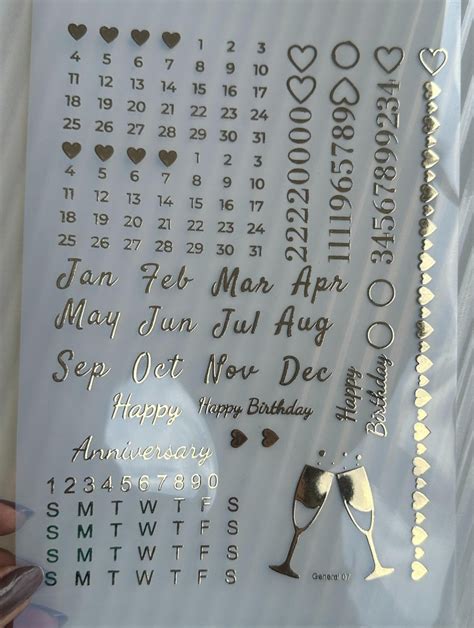 1 2 3
4 5 6 7 8 9 10
11 12 13 14 15 16 17
18 19 20 21 22 23 24
25 26 27 28 29 30 31
1 2 3
4 5 6 7 8 9 10
11 12 13 14 15 16 17
18 19 20 21 22 23 24
25 26 27 28 29 30 31
22220000
1111965789
34567899234
Jan Feb Mar Apr
May Jun Jul Aug
Sep Oct Nov Dec
Happy Happy Birthday
Anniversary
Happy
Birthday
1 2 3 4 5 6 7 8 9 0
S M T W T F S
S M T W T F S
S M T W T F S
S M T W T F S
General 07